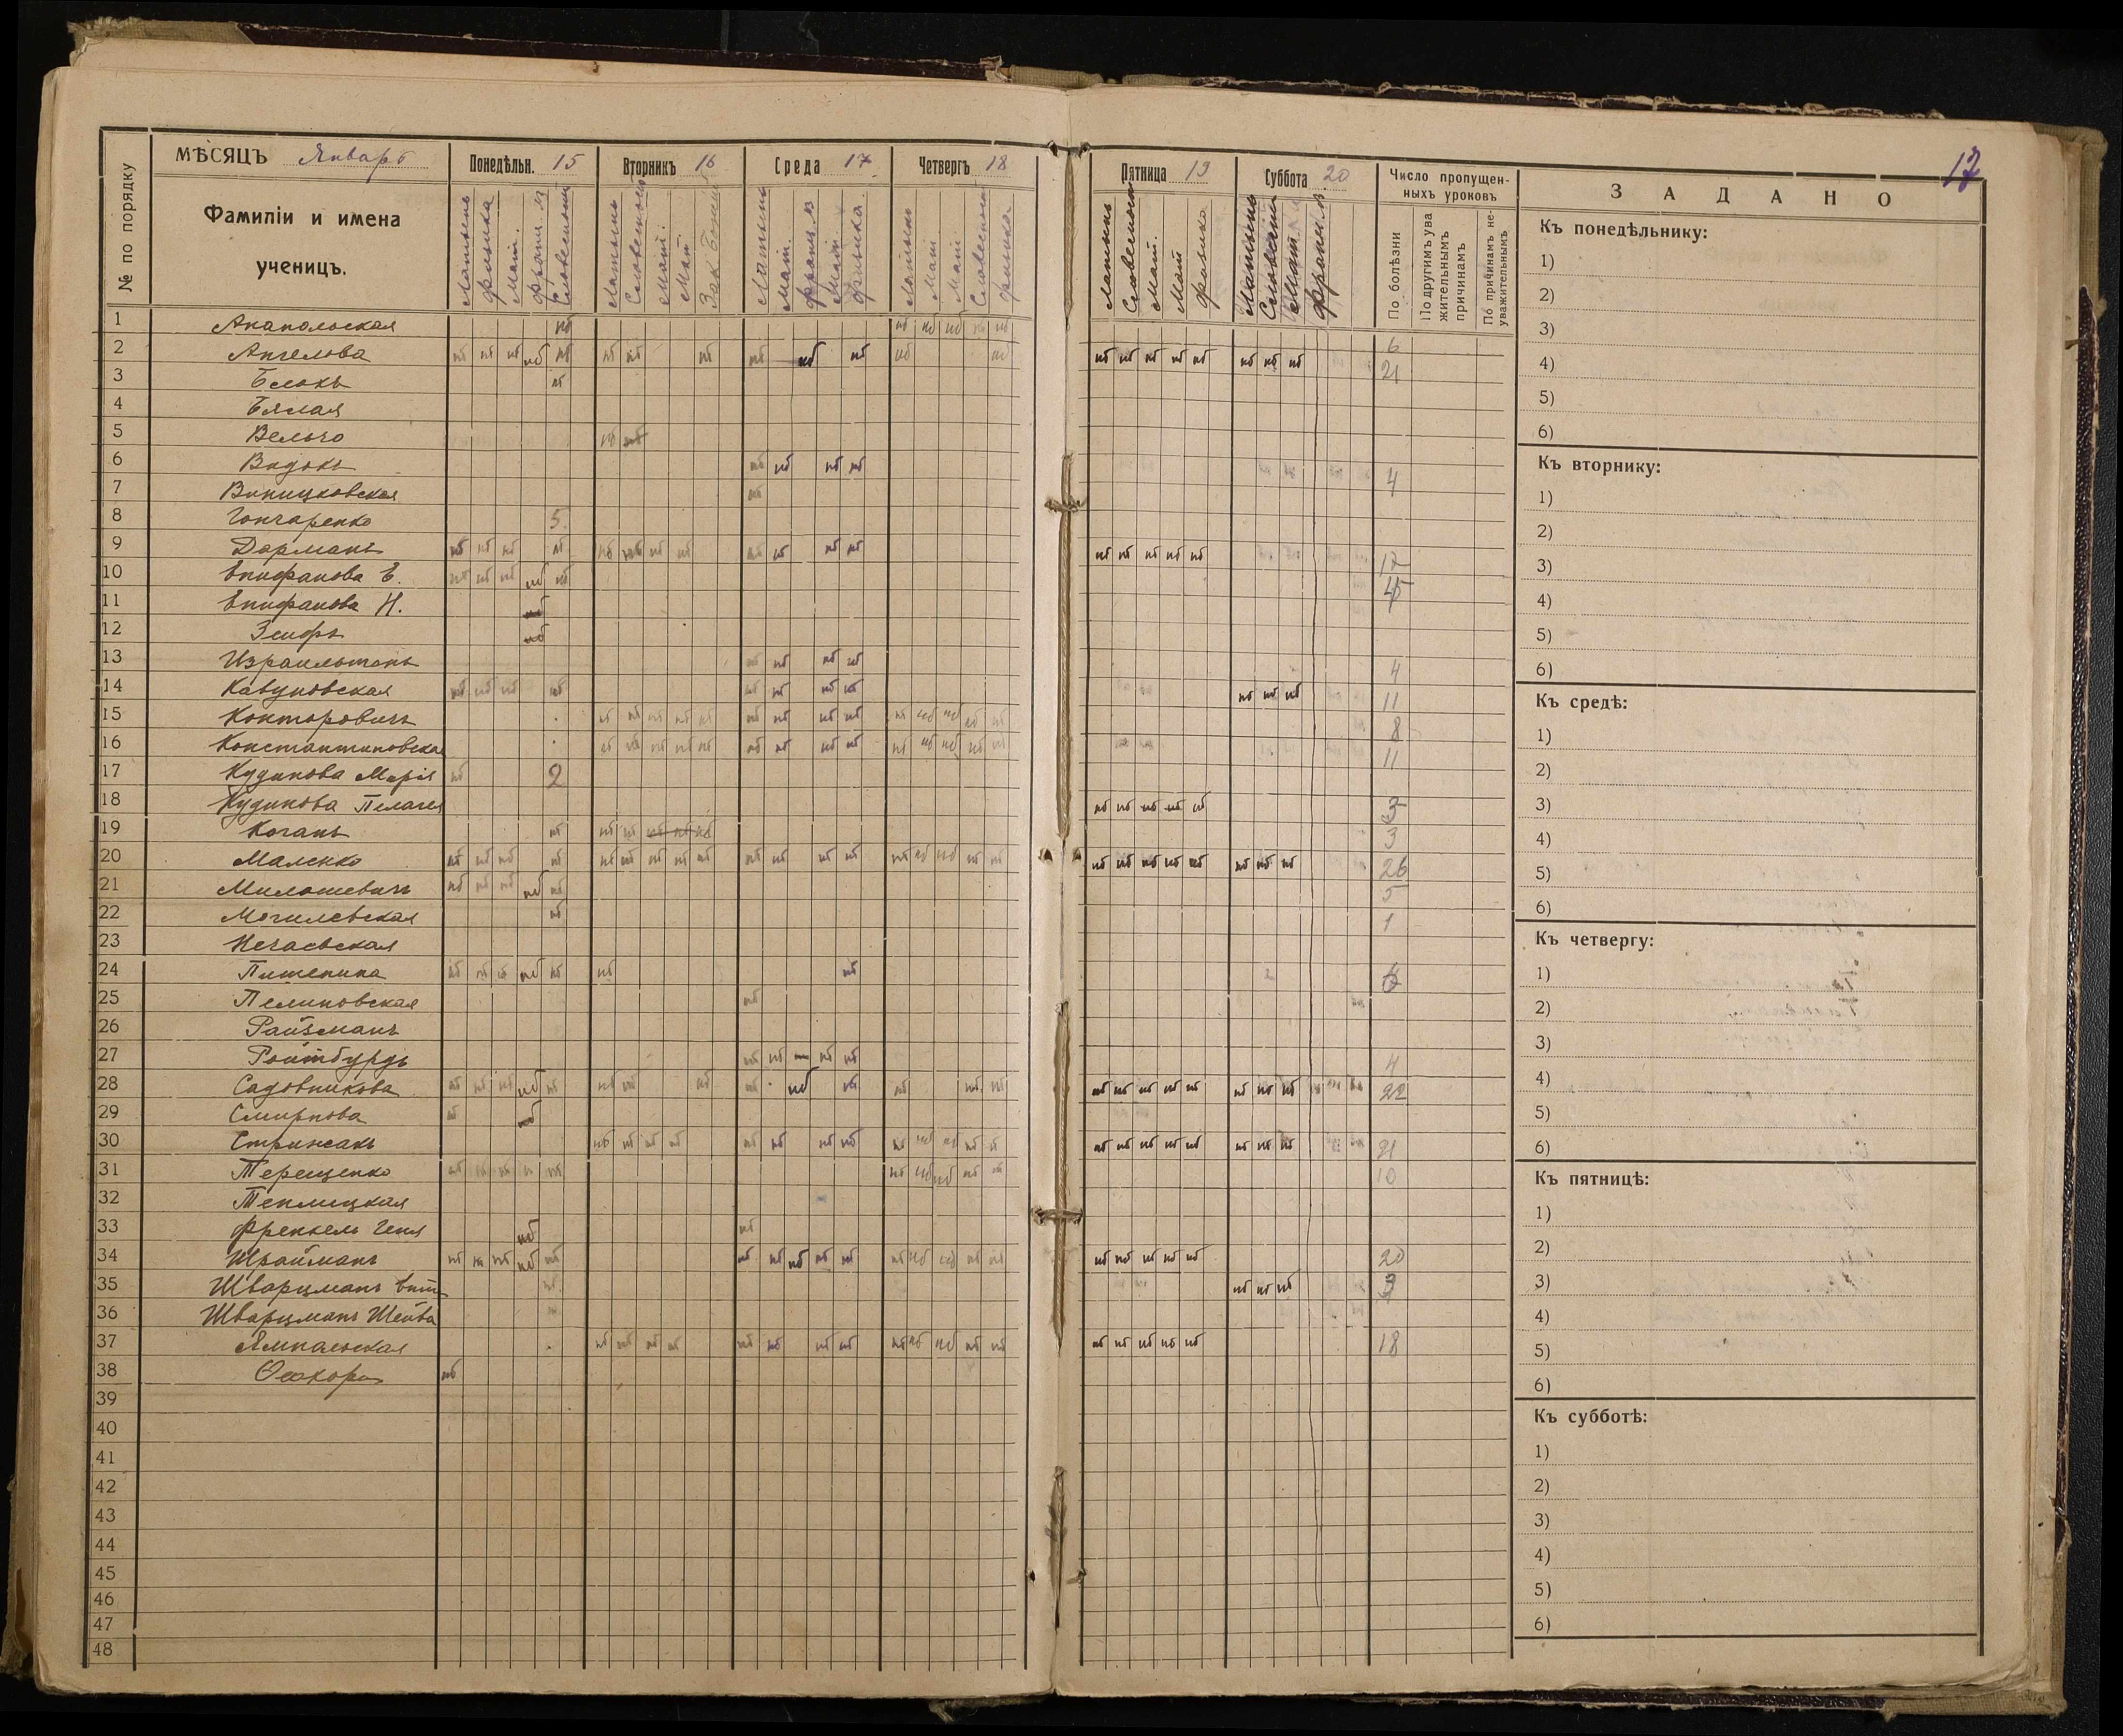 17
МѢСЯЦЪ Январь
Понедѣльн. 15
Вторникъ 16
Среда 17
Четвергъ 18
Пятница 19
Суббота 20
Число пропущен-
ныхъ уроковъ
З А Д А Н О
№ по порядку
Фамиліи и имена
ученицъ.
Латынь
Физика
Мат.
Франц. яз
Словесность
Латынь
Словесность
Мат.
Мат.
Зак. Божій
Латынь
Мат.
Франц. яз
Мат.
Физика
Латынь
Мат.
Мат.
Словесность
Физика
Латынь
Словесность
Мат.
Мат
Физика
Латынь
Словесн
Мат.
Франц. яз
По болѣзни
По другимъ ува
жительнымъ
причинамъ
По причинамъ не-
уважительнымъ
1 Анапольская нб нб нб нб нб нб 6
2 Ангелова нб нб нб нб нб нб нб нб нб нб нб нб нб нб нб нб нб нб нб нб нб 21
3 Блокъ нб
4 Бялая
5 Вельго нб нб
6 Видокъ нб нб нб нб 4
7 Виницковская нб
8 Гончаренко 5
9 Дорманъ нб нб нб нб нб нб нб нб нб нб нб нб нб нб нб нб нб 17
10 Епифанова Е. нб нб нб нб нб
11 Епифанова Н. нб
12 Зеифъ нб
13 Израильтанъ нб нб нб нб 4
14 Кавуновская нб нб нб нб нб нб нб нб нб нб нб 11
15 Конторовичъ нб нб нб нб нб нб нб нб нб нб нб нб нб нб 8
16 Константиновская нб нб нб нб нб нб нб нб нб нб нб нб нб нб 11
17 Кудинова Марія нб 2
18 Кудинова Пелагея нб нб нб нб нб 3
19 Коганъ нб нб нб нб нб нб 3
20 Маленко нб нб нб нб нб нб нб нб нб нб нб нб нб нб нб нб нб нб нб нб нб нб нб нб нб нб 26
21 Милошевичъ нб нб нб нб нб 5
22 Могилевская нб 1
23 Нечаевская
24 Пишенина нб нб нб нб нб нб нб
25 Пелиновская нб
26 Райзманъ
27 Ройтбурдъ нб нб – нб нб 4
28 Садовникова нб нб нб нб нб нб нб нб нб нб нб нб нб нб нб нб нб нб нб нб нб нб 22
29 Смирнова нб нб
30 Стрижакъ нб нб нб нб нб нб нб нб нб нб нб нб нб нб нб нб нб нб нб нб нб 21
31 Терещенко нб нб нб нб нб нб нб нб нб нб 10
32 Теплицкая
33 Френкель Геня нб нб
34 Шрайманъ нб нб нб нб нб нб нб нб нб нб нб нб нб нб нб нб нб нб нб нб 20
35 Шварцманъ нб нб нб нб 3
36 Шварцманъ Шейва
37 Ямпольская нб нб нб нб нб нб нб нб нб нб нб нб нб нб нб нб нб нб 18
38 нб
39
40
41
42
43
44
45
46
47
48
Къ понедѣльнику:
1)
2)
3)
4)
5)
6)
Къ вторнику:
1)
2)
3)
4)
5)
6)
Къ средѣ:
1)
2)
3)
4)
5)
6)
Къ четвергу:
1)
2)
3)
4)
5)
6)
Къ пятницѣ:
1)
2)
3)
4)
5)
6)
Къ субботѣ:
1)
2)
3)
4)
5)
6)